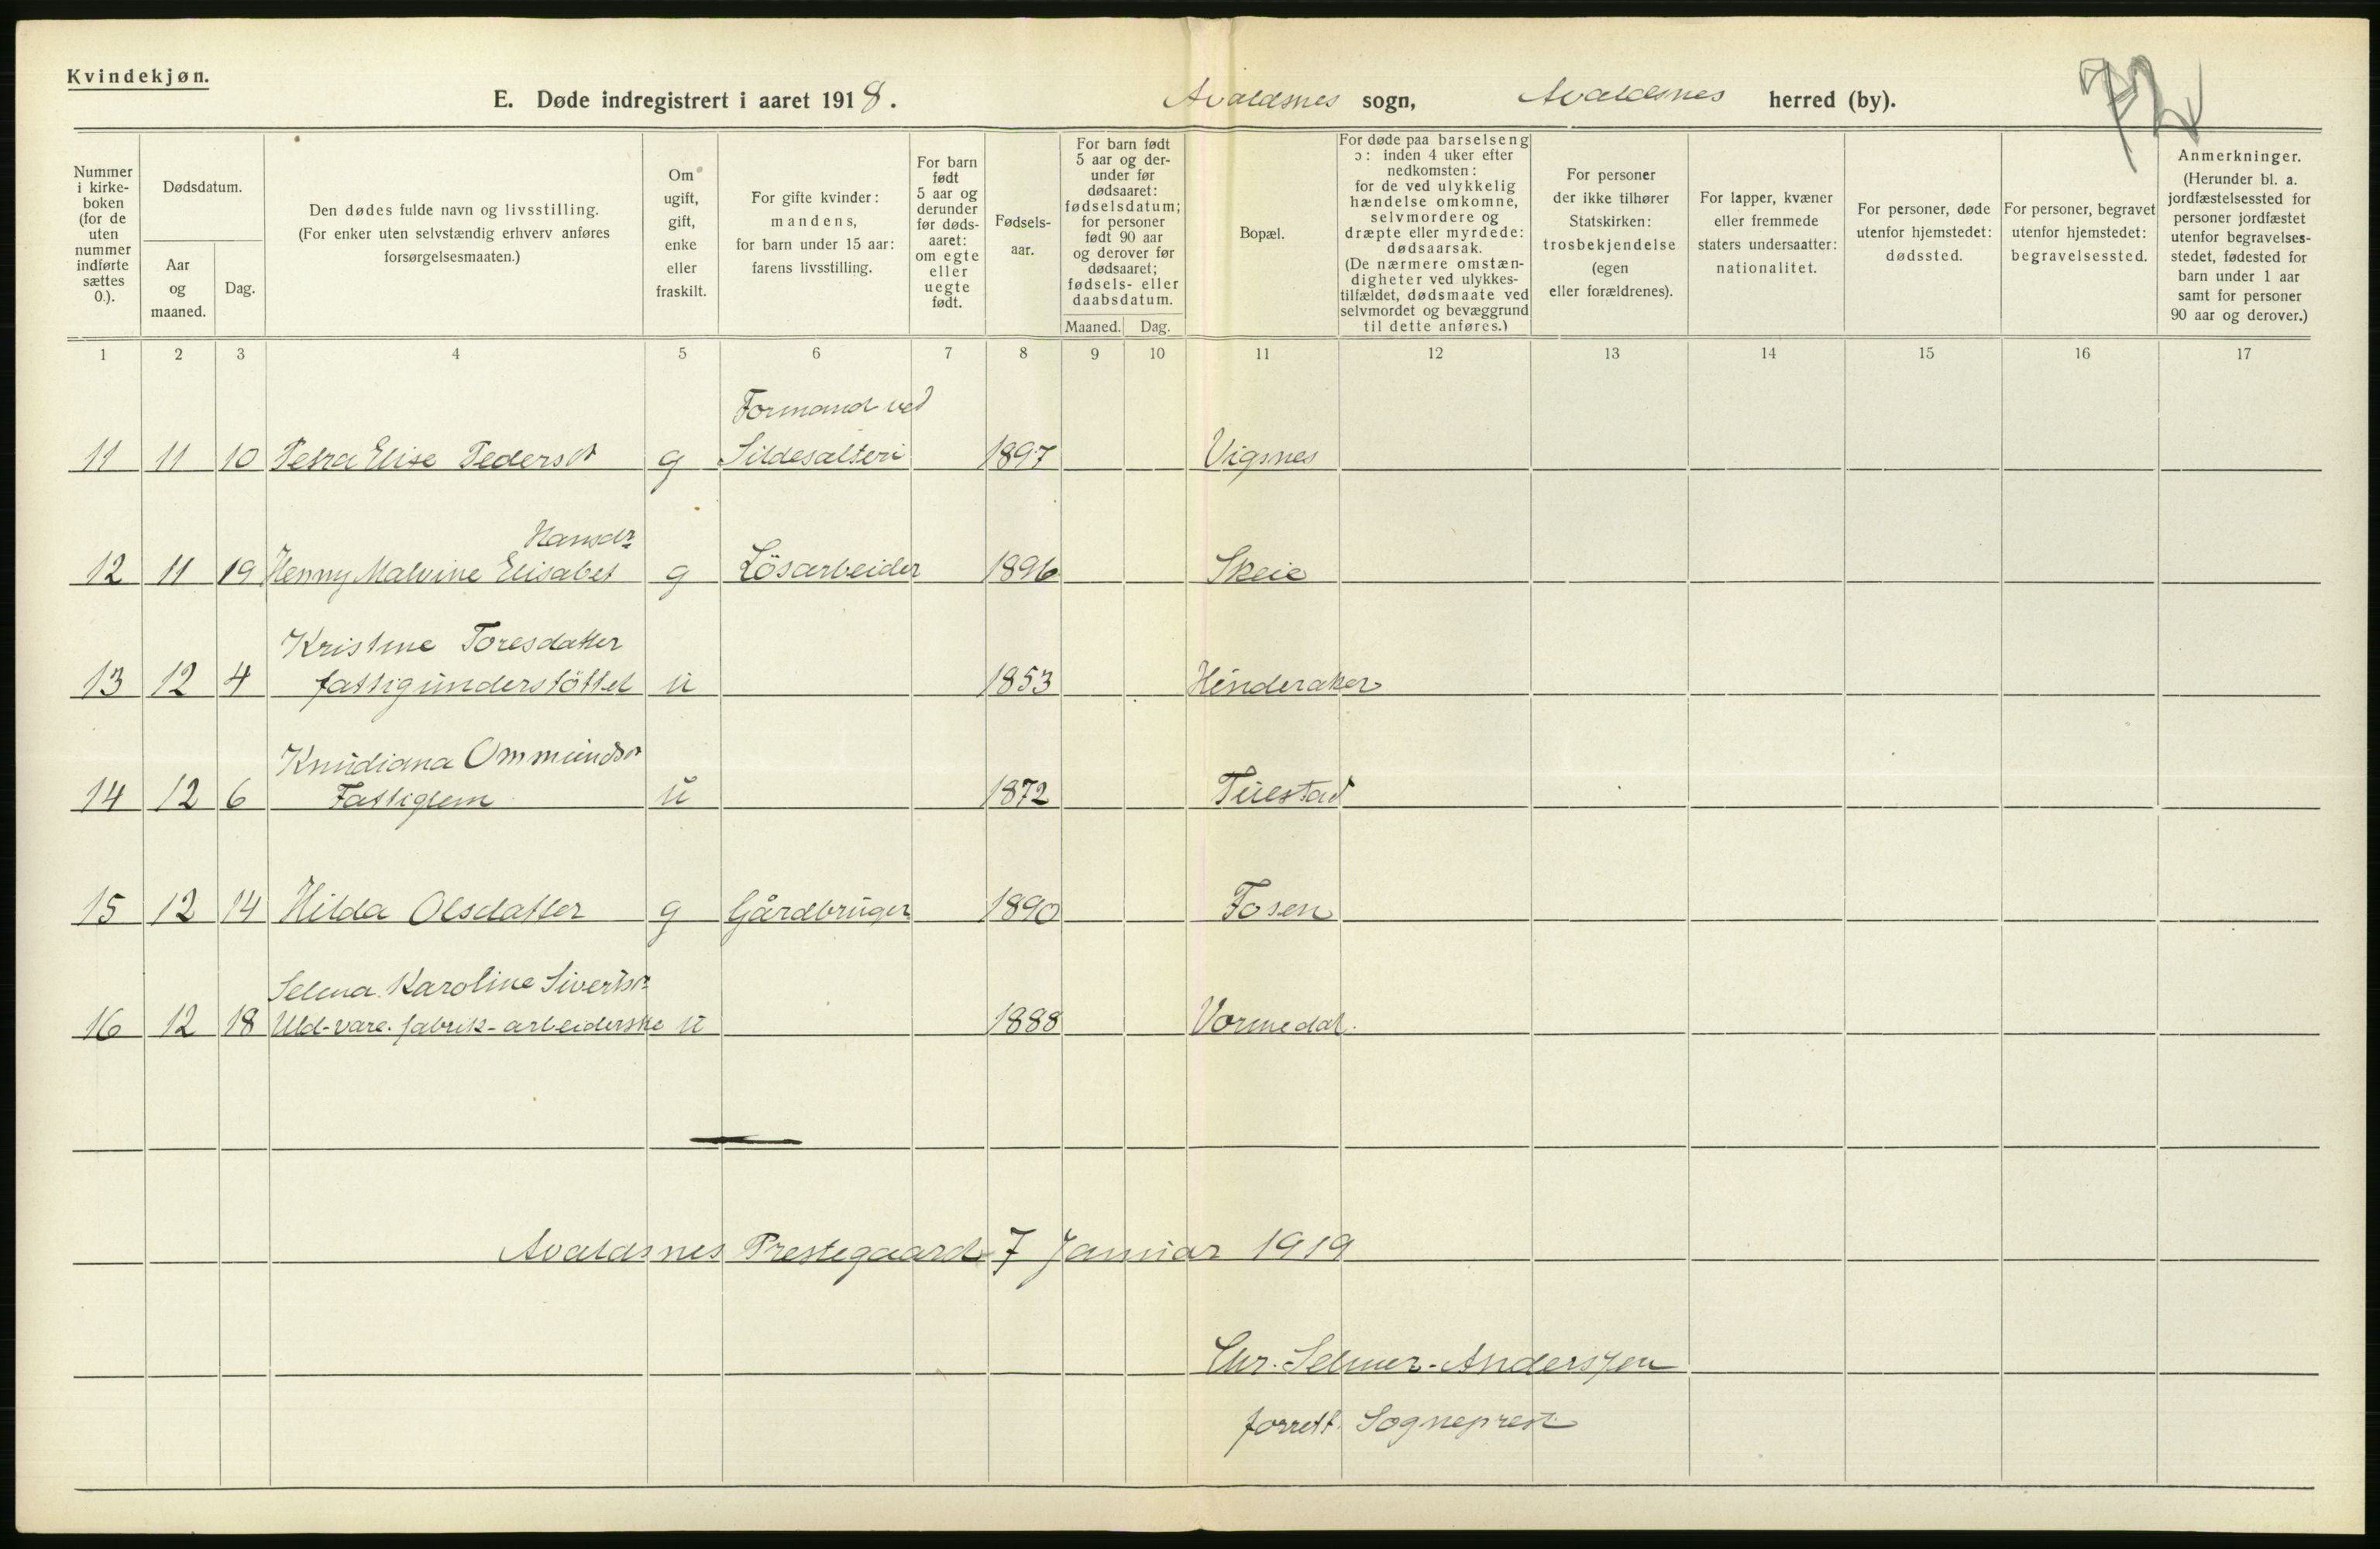 Kvindekjøn.
E. Døde indregistrert i aaret 1918. Avaldsnes sogn, Avaldsnes herred (by).
Nummer i kirke- boken (for de uten nummer indførte sættes 0.).
Dødsdatum.
Aar og maaned.
Dag.
Den dødes fulde navn og livsstilling.
(For enker uten selvstændig erhverv anføres
forsørgelsesmaaten.)
Om ugift, gift, enke eller fraskilt.
For gifte kvinder:
mandens,
for barn under 15 aar:
farens livsstilling.
For barn født 5 aar og derunder før døds- aaret: om egte eller uegte født.
Fødsels- aar.
For barn født 5 aar og der- under før dødsaaret: fødselsdatum; for personer født 90 aar og derover før dødsaaret; fødsels- eller daabsdatum.
Maaned. Dag.
Bopæl.
For døde paa barselseng
ɔ: inden 4 uker efter
nedkomsten:
for de ved ulykkelig
hændelse omkomne,
selvmordere og
dræpte eller myrdede:
dødsaarsak.
(De nærmere omstæn-
digheter ved ulykkes-
tilfældet, dødsmaate ved
selvmordet og bevæggrund
til dette anføres.)
For personer
der ikke tilhører
Statskirken:
trosbekjendelse
(egen
eller forældrenes).
For lapper, kvæner
eller fremmede
staters undersaatter:
nationalitet.
For personer, døde
utenfor hjemstedet:
dødssted.
For personer, begravet
utenfor hjemstedet:
begravelsessted.
Anmerkninger.
(Herunder bl. a.
jordfæstelsessted for
personer jordfæstet
utenfor begravelses-
stedet, fødested for
barn under 1 aar
samt for personer
90 aar og derover.)
1 2 3 4 5 6 7 8 9 10 11 12 13 14 15 16 17
Formand ved
11 11 10 Petra Elise Pedersdr g Sildesalteri 1897 Vigsnes
Hansdr
12 11 19 Henny Malvine Elisabet g Lösarbeider 1896 Skeie
Kristine Toresdatter
13 12 4 fattigunderstöttet u 1853 Hinderaker
Knudiana Ommundsdr
14 12 6 Fattiglem u 1872 Tuestad
15 12 14 Hilda Olsdatter g Gårdbruger 1890 Fosen
Selma Karoline Sivertsdr
16 12 18 Uld-vare-fabrik-arbeiderske u 1888 Vormedal.
Avaldsnes Prestegaard 7 Januar 1919
Chr. Selmer-Anderssen
forrett. Sogneprest